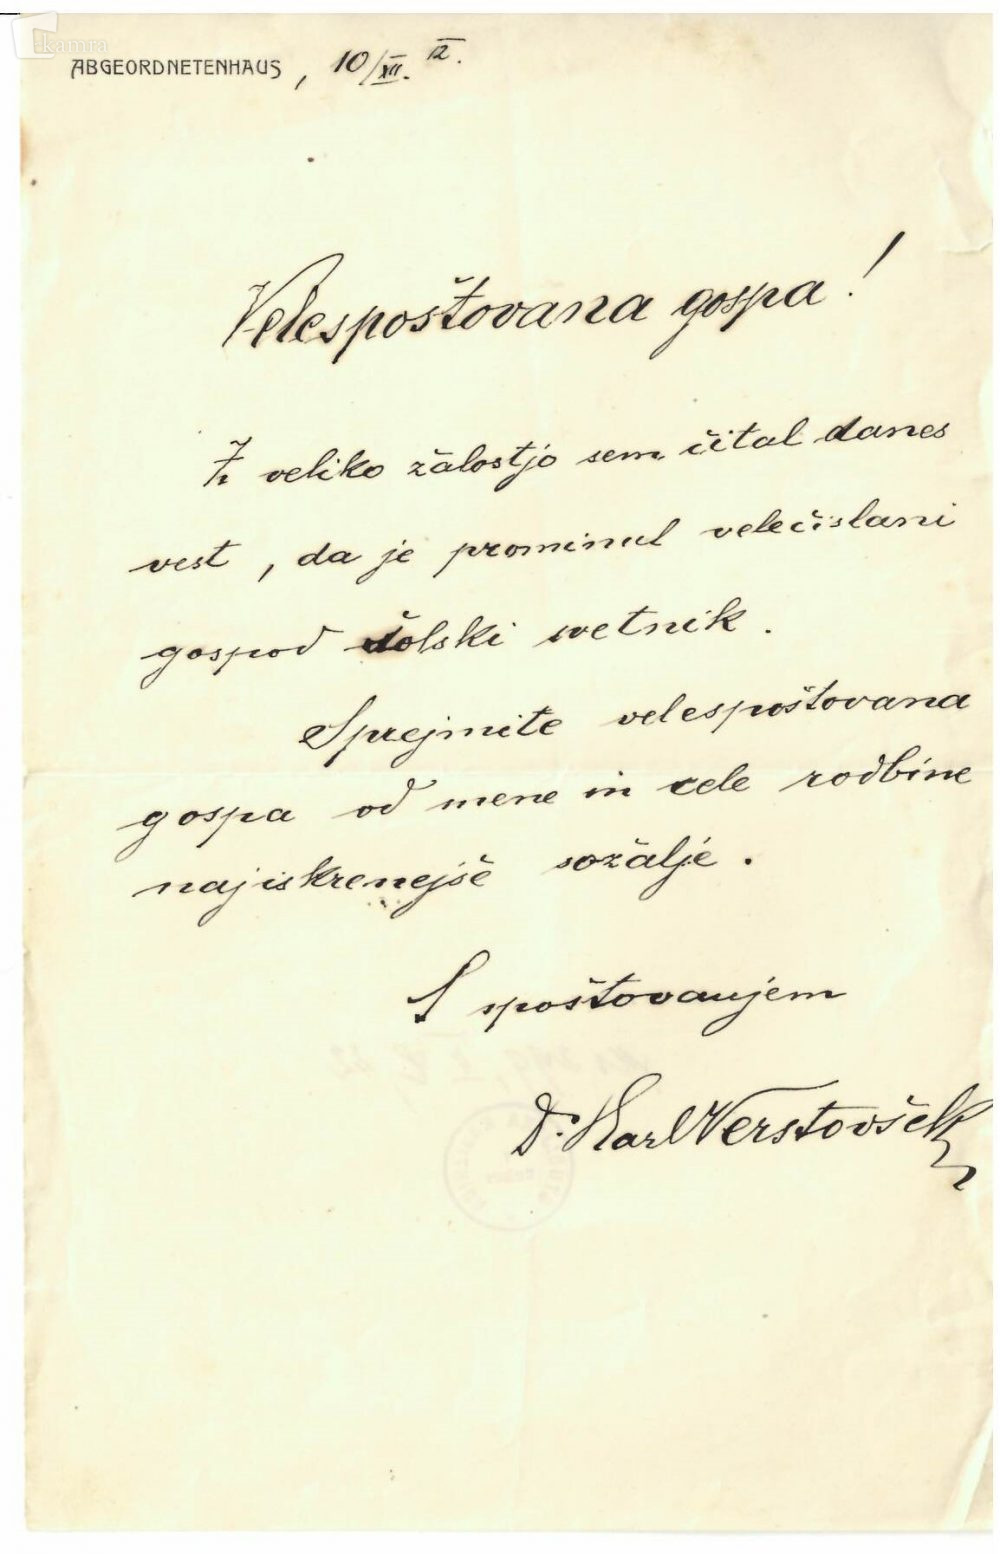 kamra
ABGEORDNETENHAUS, 10/XII. 12.
Velespoštovana gospa!
Z veliko žalostjo sem čital danes
vest, da je prominul velečislani
gospod šolski svetnik.
Sprejmite velespoštovana
gospa od mene in cele rodbine
najiskrenejše sožalje.
S spoštovanjem
Dr. Karl Verstovšek